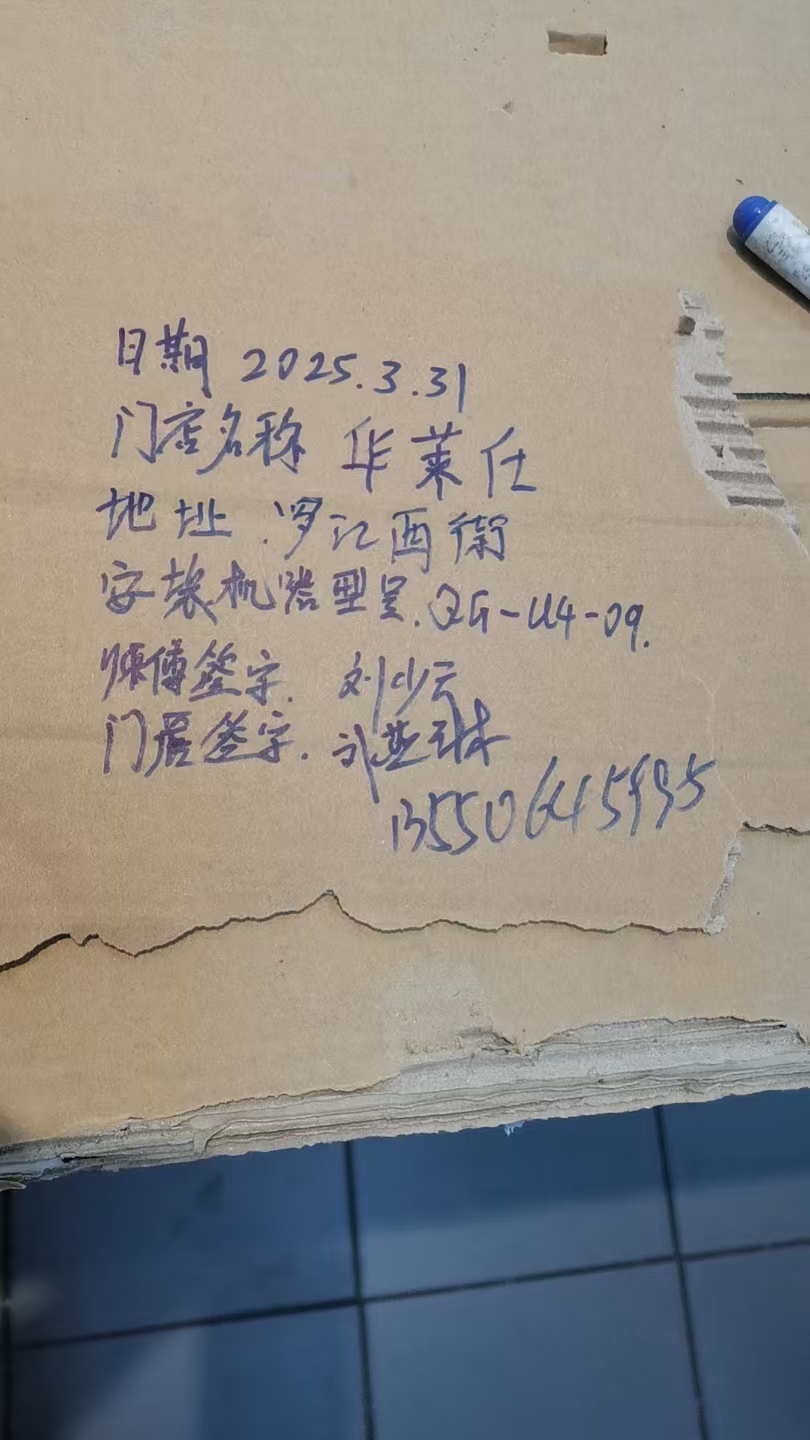 日期 2025.3.31
门店名称 华莱仕
地址.罗江西街
安装机器型号.QG-U4-09.
师傅签字. 刘少云
门店签字.
13550645995